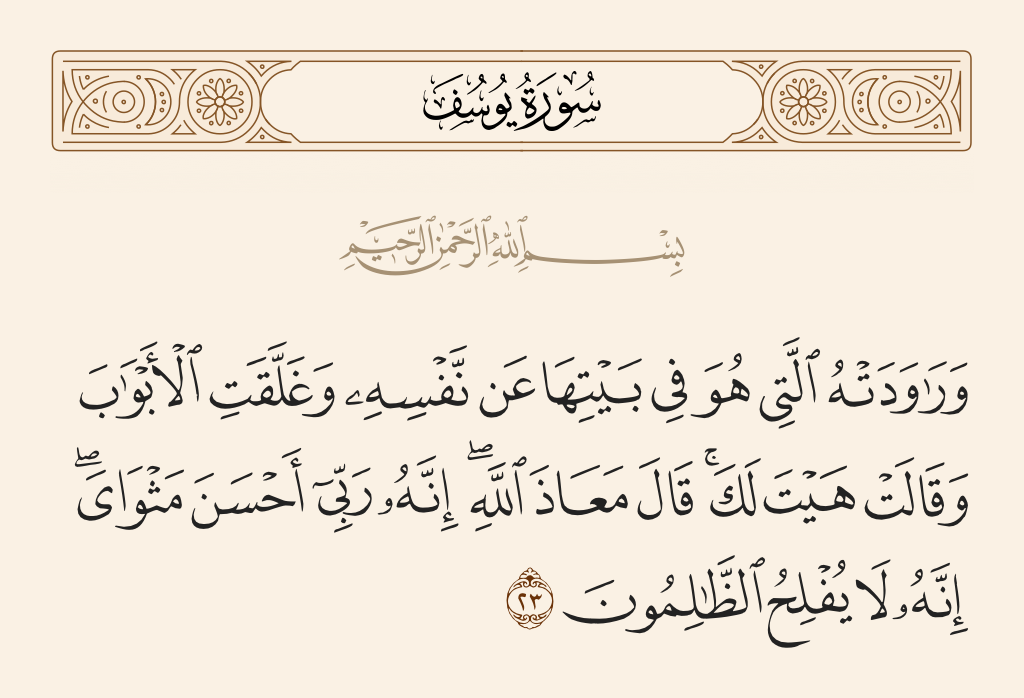 سُورَةُ يُوسُفَ
بِسْمِ ٱللَّهِ ٱلرَّحْمَٰنِ ٱلرَّحِيمِ
وَرَٰوَدَتْهُ ٱلَّتِى هُوَ فِى بَيْتِهَا عَن نَّفْسِهِۦ وَغَلَّقَتِ ٱلْأَبْوَٰبَ
وَقَالَتْ هَيْتَ لَكَ ۚ قَالَ مَعَاذَ ٱللَّهِ ۖ إِنَّهُۥ رَبِّىٓ أَحْسَنَ مَثْوَاىَ ۖ
إِنَّهُۥ لَا يُفْلِحُ ٱلظَّٰلِمُونَ ٢٣